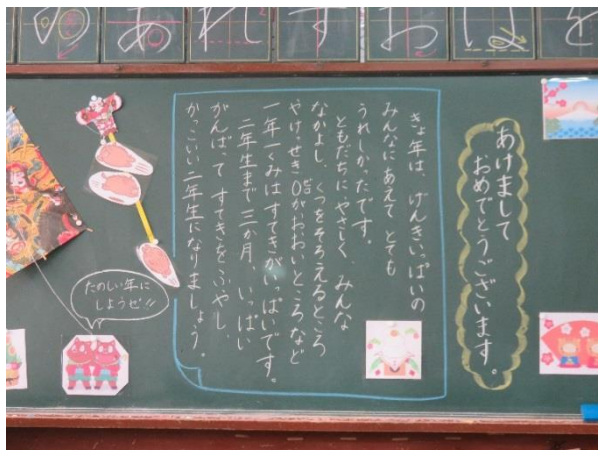 あけまして
おめでとうございます。
きょ年は、げんきいっぱいの
みんなにあえて とても
うれしかったです。
ともだちにやさしく、みんな
なかよし、くつをそろえるところ
やけっせき0がおおいところなど
一年一くみはすてきがいっぱいです。
二年生まで三か月、いっぱい
がんばって すてきをふやし、
かっこいい二年生になりましょう。
たのしい年に
しようぜ!!